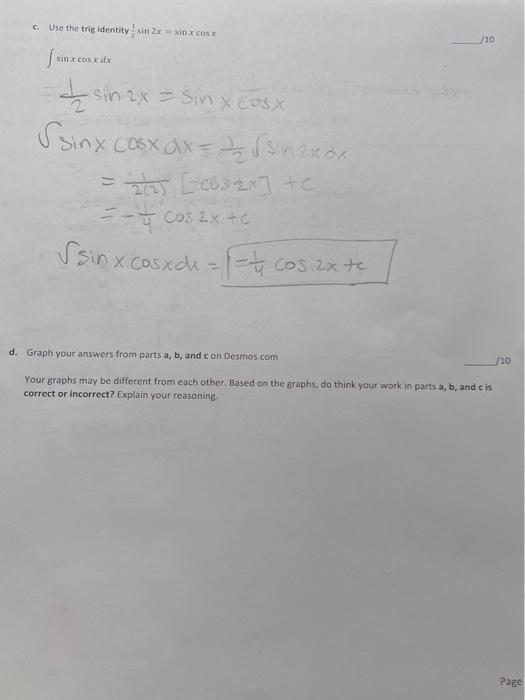 c. Use the trig identity ½ sin 2x = sin x cos x
___/10
∫ sin x cos x dx
½ sin 2x = sin x cosx
∫sinx cosx dx = ½ ∫sin 2x dx
= 1/2(2) [-cos2x] + c
= -¼ cos 2x + c
∫sin x cosx dx = -¼ cos 2x + c
d. Graph your answers from parts a, b, and c on Desmos.com
___/10
Your graphs may be different from each other. Based on the graphs, do think your work in parts a, b, and c is
correct or incorrect? Explain your reasoning.
Page